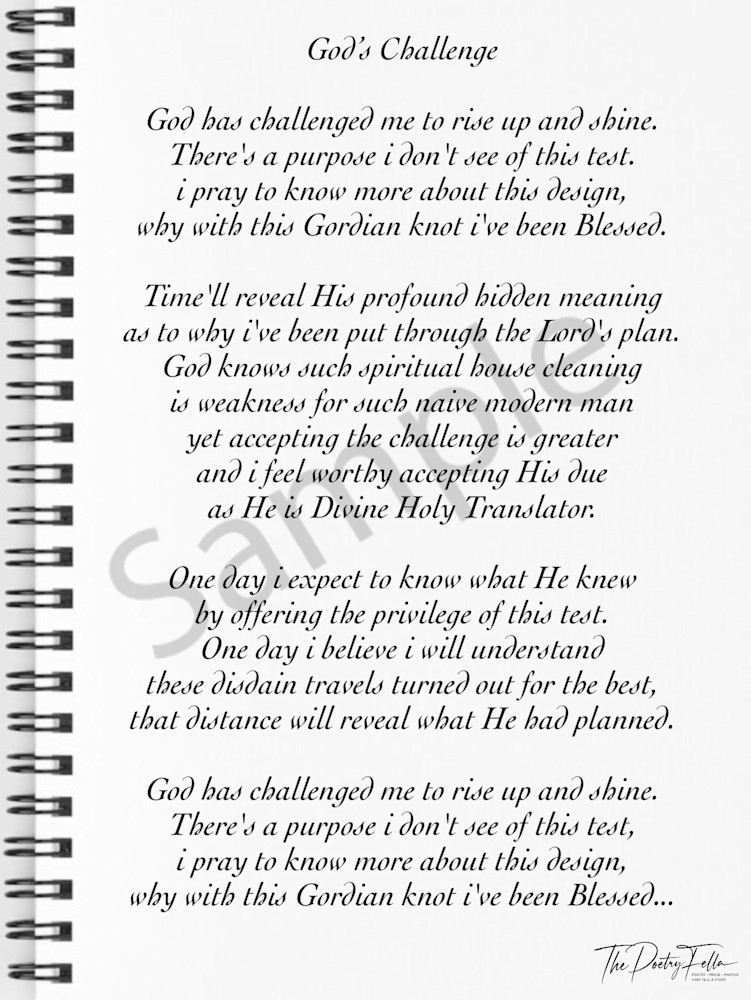 God's Challenge
God has challenged me to rise up and shine.
There's a purpose i don't see of this test.
i pray to know more about this design,
why with this Gordian knot i've been Blessed.
Time'll reveal His profound hidden meaning
as to why i've been put through the Lord's plan.
God knows such spiritual house cleaning
is weakness for such naive modern man
yet accepting the challenge is greater
and i feel worthy accepting His due
as He is Divine Holy Translator.
One day i expect to know what He knew
by offering the privilege of this test.
One day i believe i will understand
these disdain travels turned out for the best,
that distance will reveal what He had planned.
God has challenged me to rise up and shine.
There's a purpose i don't see of this test,
i pray to know more about this design,
why with this Gordian knot i've been Blessed...
Sample
The Poetry Fella
POETRY • PROSE • PHOTOS
THAT TELL A STORY